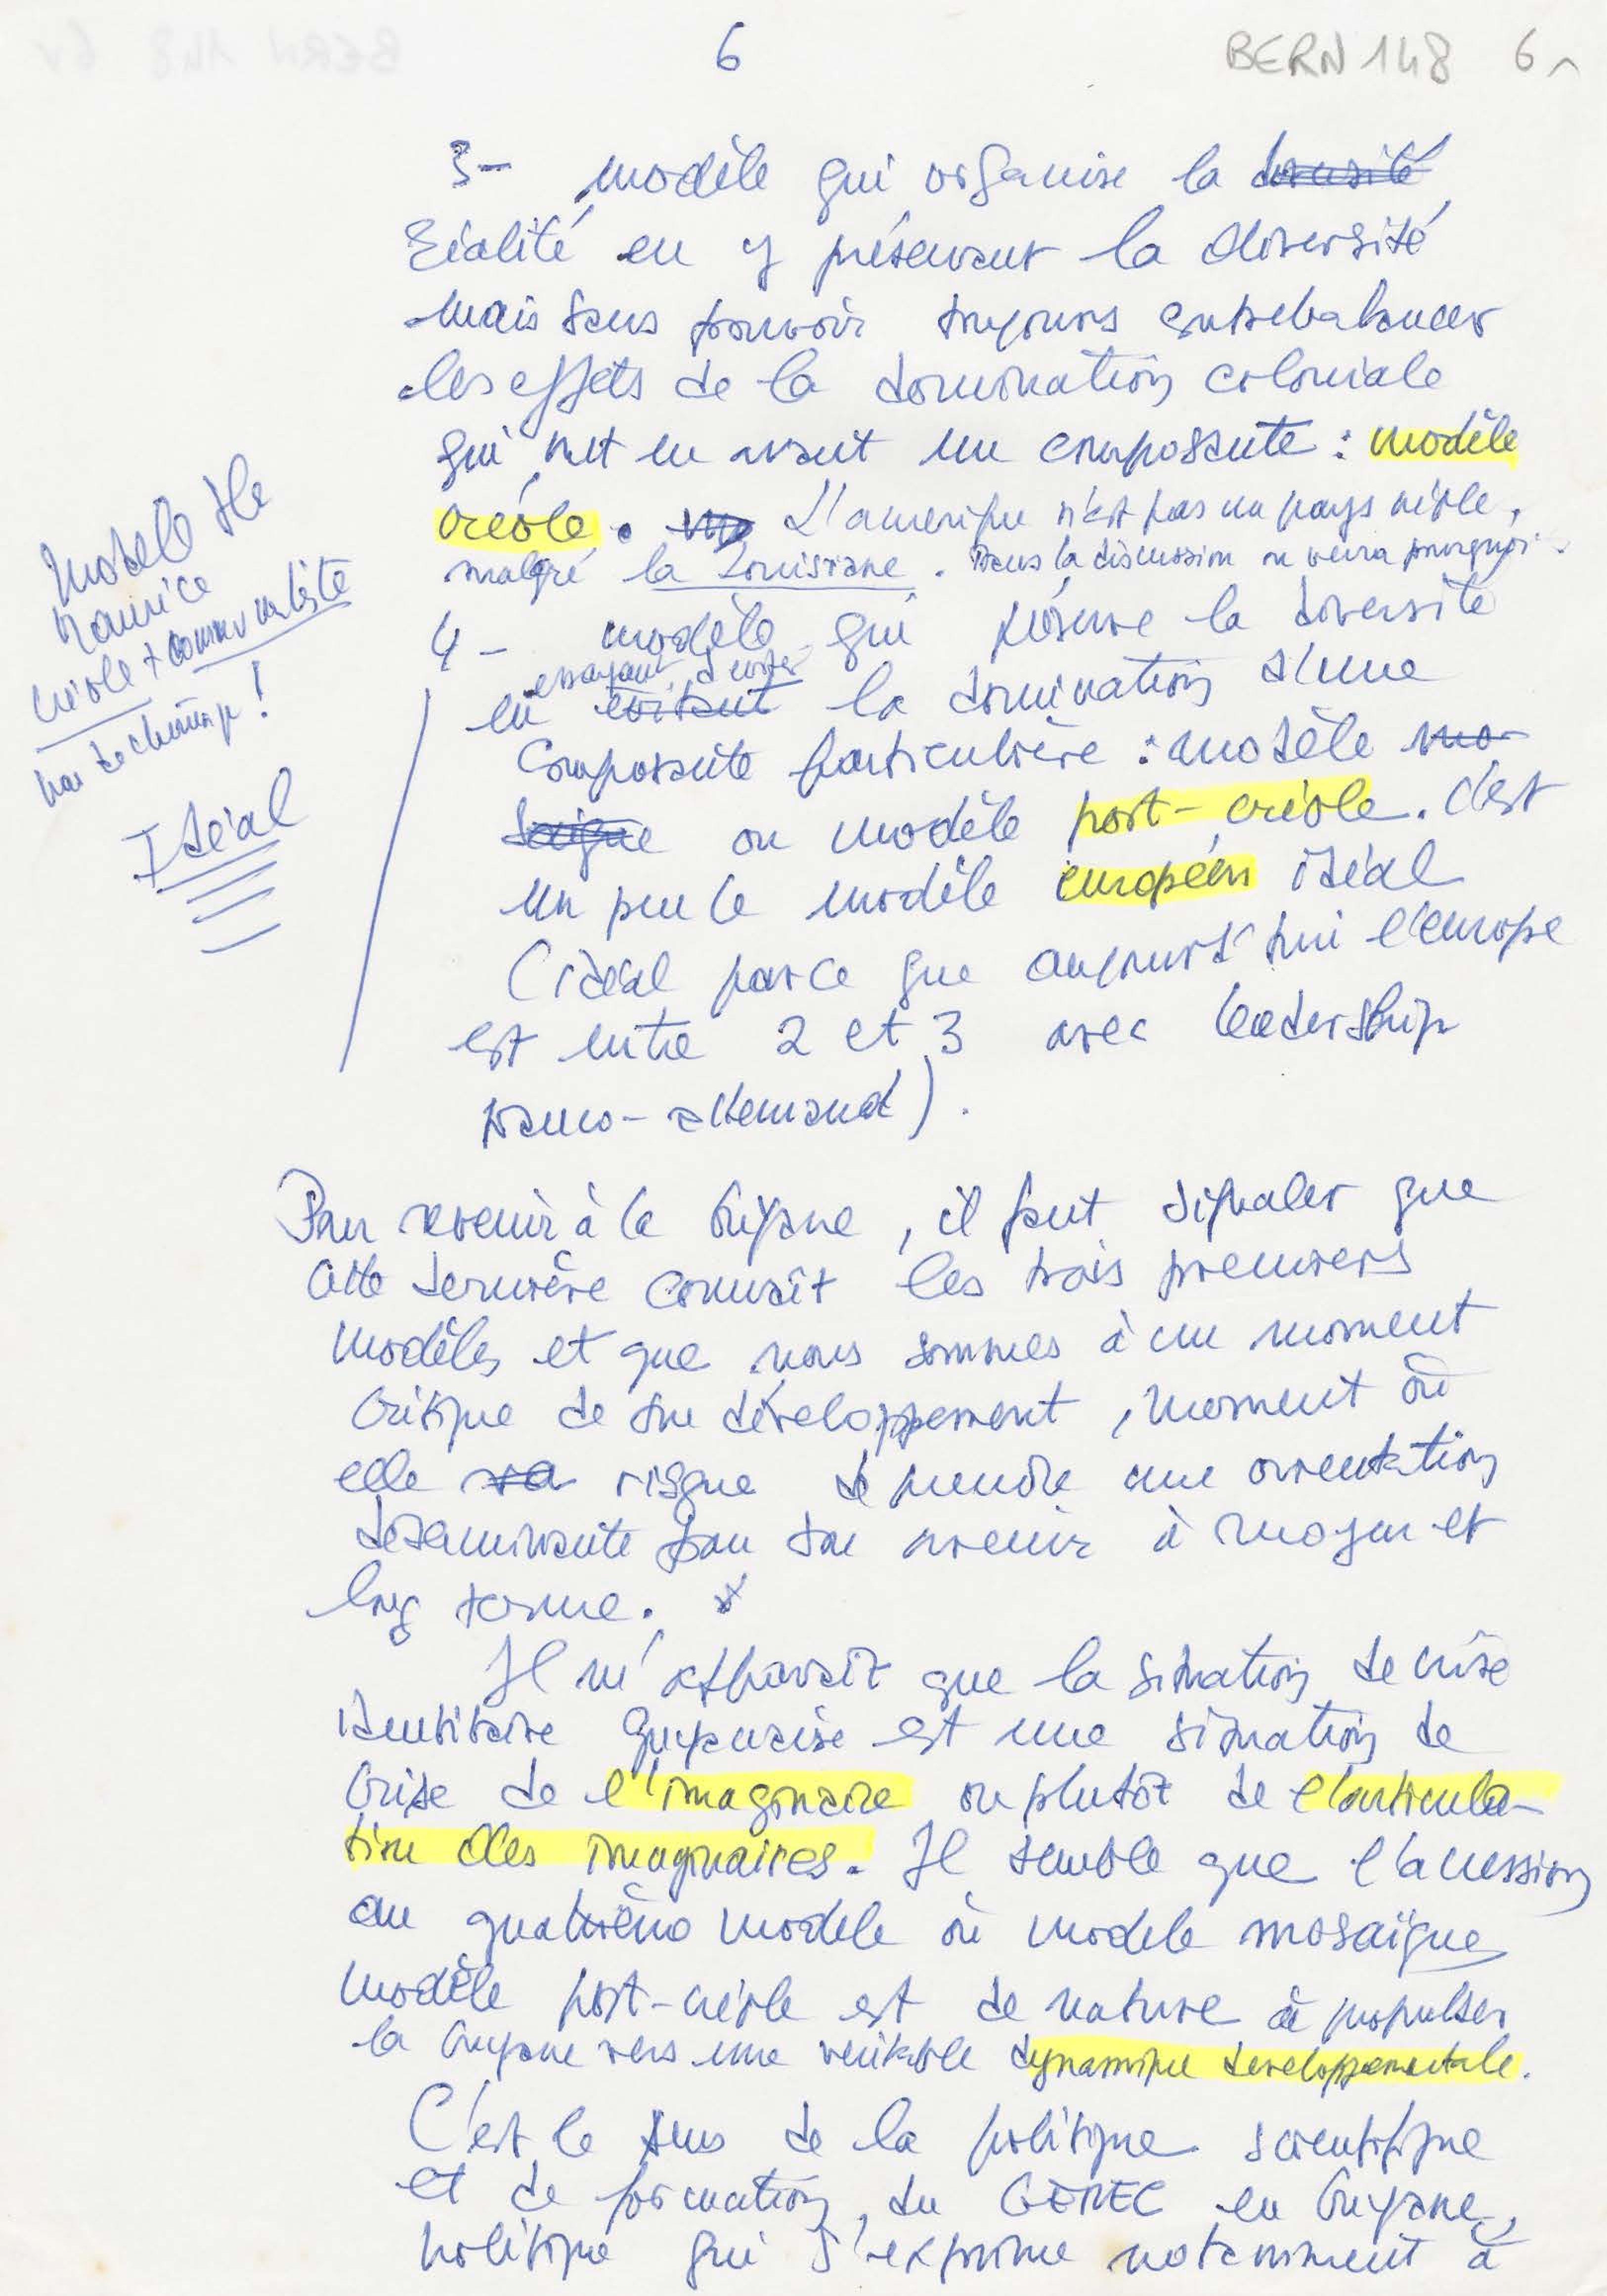 6
BERN 148 6r
3- modèle qui organise la diversité
réalité en y préservant la diversité
mais sans pouvoir toujours contrebalancer
les effets de la domination coloniale
qui met en avant une composante : modèle
créole. L'amérique n'est pas un pays créole,
malgré la Louisiane. Dans la discussion on verra pourquoi.
4- modèle qui préserve la diversité
essayant d'éviter
en évitant la domination d'une
composante particulière : modèle mo-
saïque ou modèle post-créole. C'est
un peu le modèle européen idéal
(idéal parce que aujourd'hui l'europe
est entre 2 et 3 avec leadership
franco-allemand).
Modèle Ile
Maurice
créole + communaliste
par technique !
Idéal
Pour revenir à la Guyane, il faut signaler que
cette dernière connaît les trois premiers
modèles et que nous sommes à un moment
critique de son développement, moment où
elle va risque de prendre une orientation
déterminante pour son avenir à moyen et
long terme.
Il m'apparaît que la situation de crise
identitaire guyanaise est une situation de
crise de l'imaginaire ou plutôt de l'articula-
tion des imaginaires. Il semble que l'accession
au quatrième modèle où modele mosaïque
modèle post-créole est de nature à propulser
la Guyane vers une véritable dynamique développementale.
C'est le sens de la politique scientifique
et de formation du GEREC en Guyane,
politique qui s'exprime notamment à